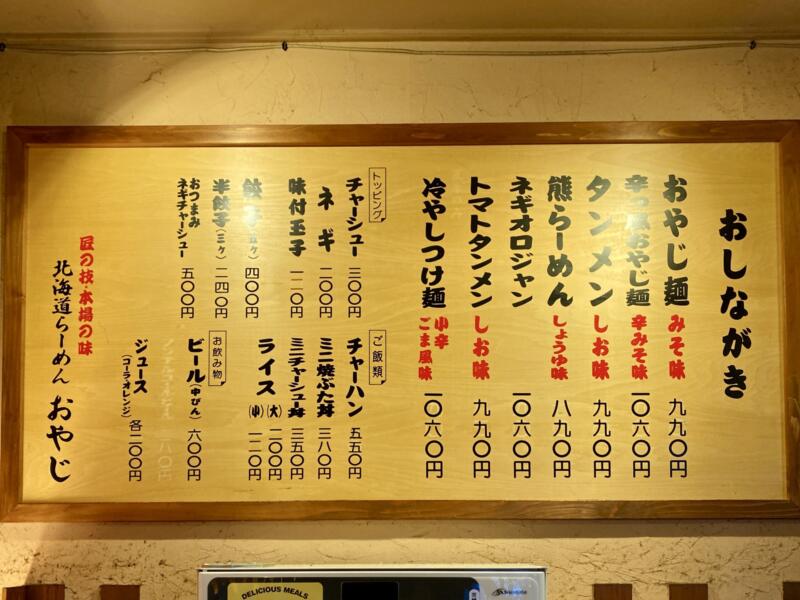 おしながき
おやじ麺 みそ味 九九〇円
辛っ風おやじ麺 辛みそ味 一〇六〇円
タンメン しお味 九九〇円
熊らーめん しょうゆ味 八九〇円
ネギオロジャン 一〇六〇円
トマトタンメン しお味 九九〇円
冷やしつけ麺 小辛 ごま風味 一〇六〇円
トッピング
チャーシュー 三〇〇円
ネギ 二〇〇円
味付玉子 一二〇円
餃子(五ヶ) 四〇〇円
半餃子(三ヶ) 二四〇円
おつまみ
ネギチャーシュー 五〇〇円
ご飯類
チャーハン 五五〇円
ミニ焼ぶた丼 三八〇円
ミニチャーシュー丼 三五〇円
ライス (大) 二〇〇円
(小) 一二〇円
お飲み物
ビール(中びん) 六〇〇円
ジュース
(コーラ・オレンジ) 各二〇〇円
匠の技・本場の味
北海道らーめん おやじ
DELICIOUS MEALS